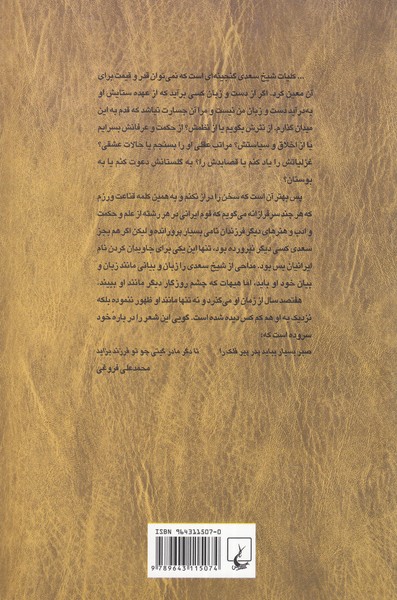 ... کلیات شیخ سعدی گنجینه‌ای است که نمی‌توان قدر و قیمت برای
آن معین کرد. اگر از دست و زبان کسی برآید که از عهده ستایش او
به‌درآید دست و زبان من نیست و مرا آن جسارت نباشد که قدم به این
میدان گذارم. از نثرش بگویم یا از نظمش؟ از حکمت و عرفانش بسرایم
یا از اخلاق و سیاستش؟ مراتب عقلی او را بسنجم یا حالات عشقی؟
غزلیاتش را یاد کنم یا قصایدش را؟ به گلستانش دعوت کنم یا به
بوستان؟
پس بهتر آن است که سخن را دراز نکنم و به همین کلمه قناعت ورزم
که هر چند سرفرازانه می‌گویم که قوم ایرانی در هر رشته از علم و حکمت
و ادب و هنرهای دیگر فرزندان نامی بسیار پرورانده ولیکن اگر هم بجز
سعدی کسی دیگر نپرورده بود، تنها این یکی برای جاویدان کردن نام
ایرانیان بس بود. مداحی از شیخ سعدی را زبان و بیانی مانند زبان و
بیان خود او باید، اما هیهات که چشم روزگار دیگر مانند او ببیند.
هفتصد سال از زمان او می‌گذرد و نه تنها مانند او ظهور ننموده بلکه
نزدیک به او هم کم کس دیده شده است. گویی این شعر را در باره خود
سروده است که:
صبر بسیار بباید پدر پیر فلک را تا دگر مادر گیتی چو تو فرزند بزاید
محمدعلی فروغی
ISBN 964311507-0
9 789643 115074